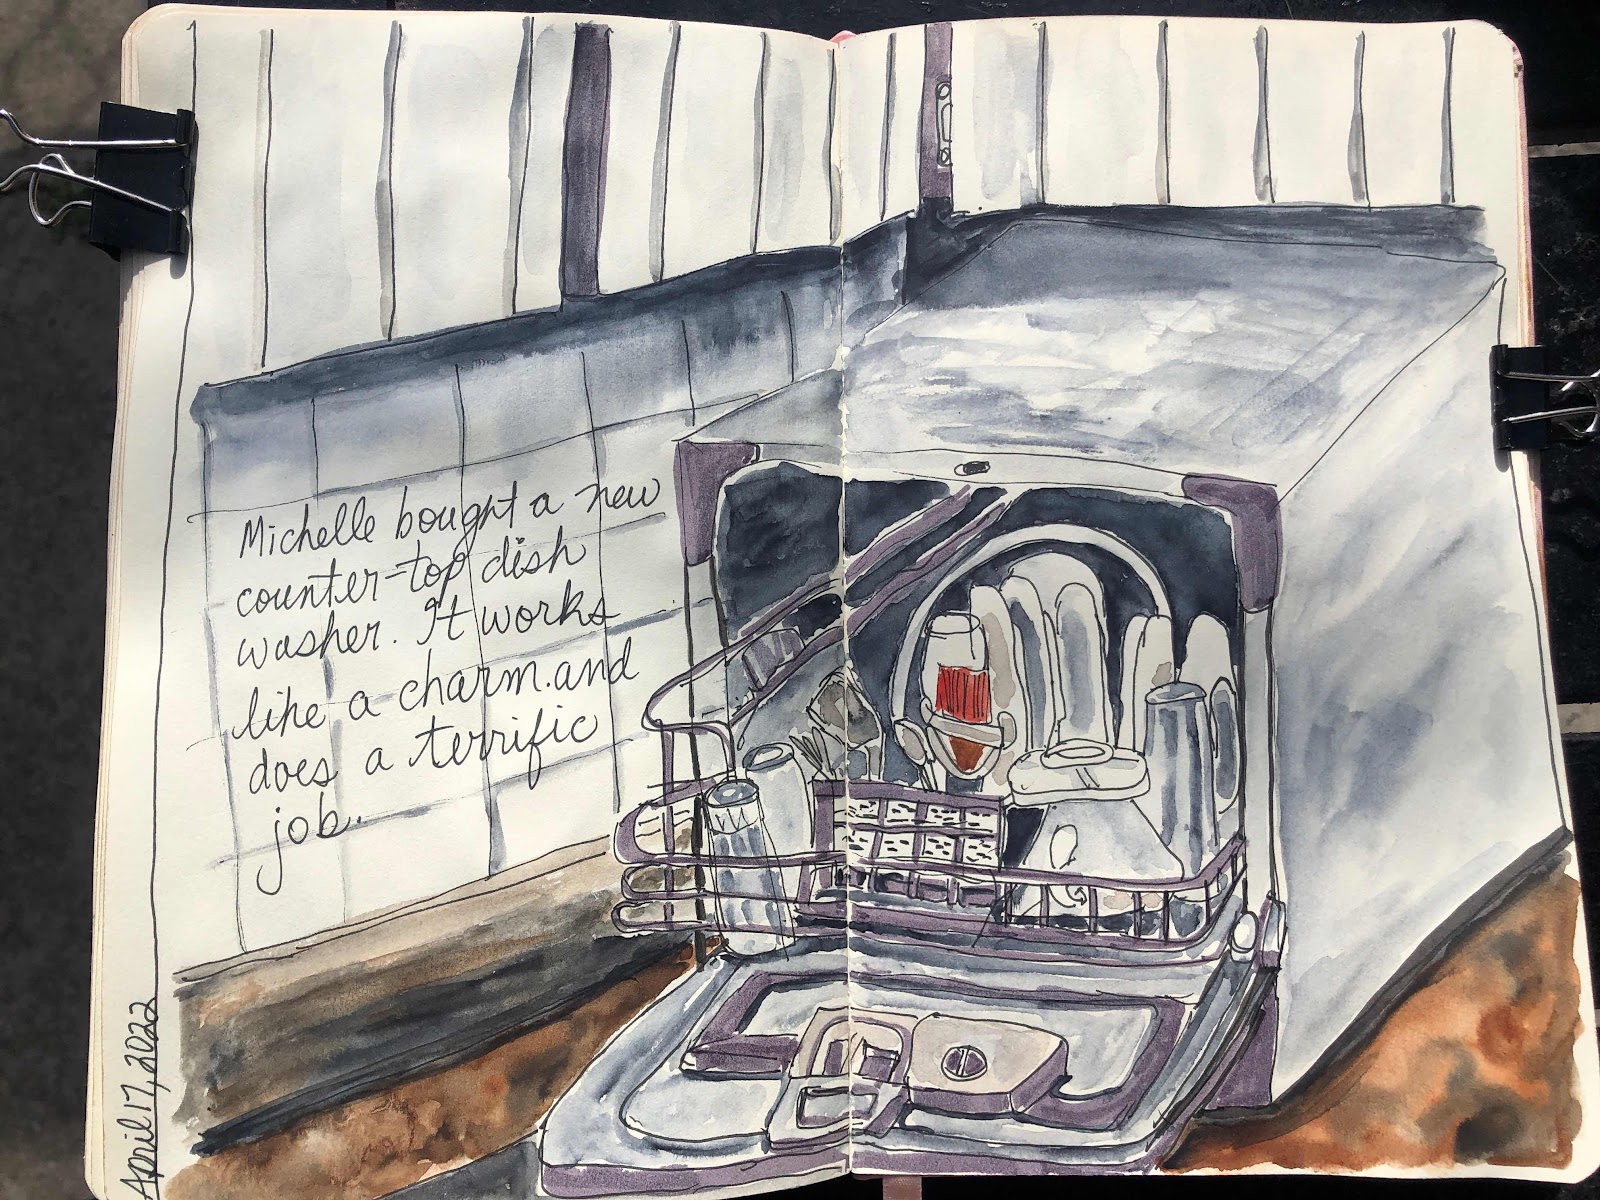 Michelle bought a new
counter-top dish
washer. It works
like a charm. and
does a terrific
job.
April 17, 2022